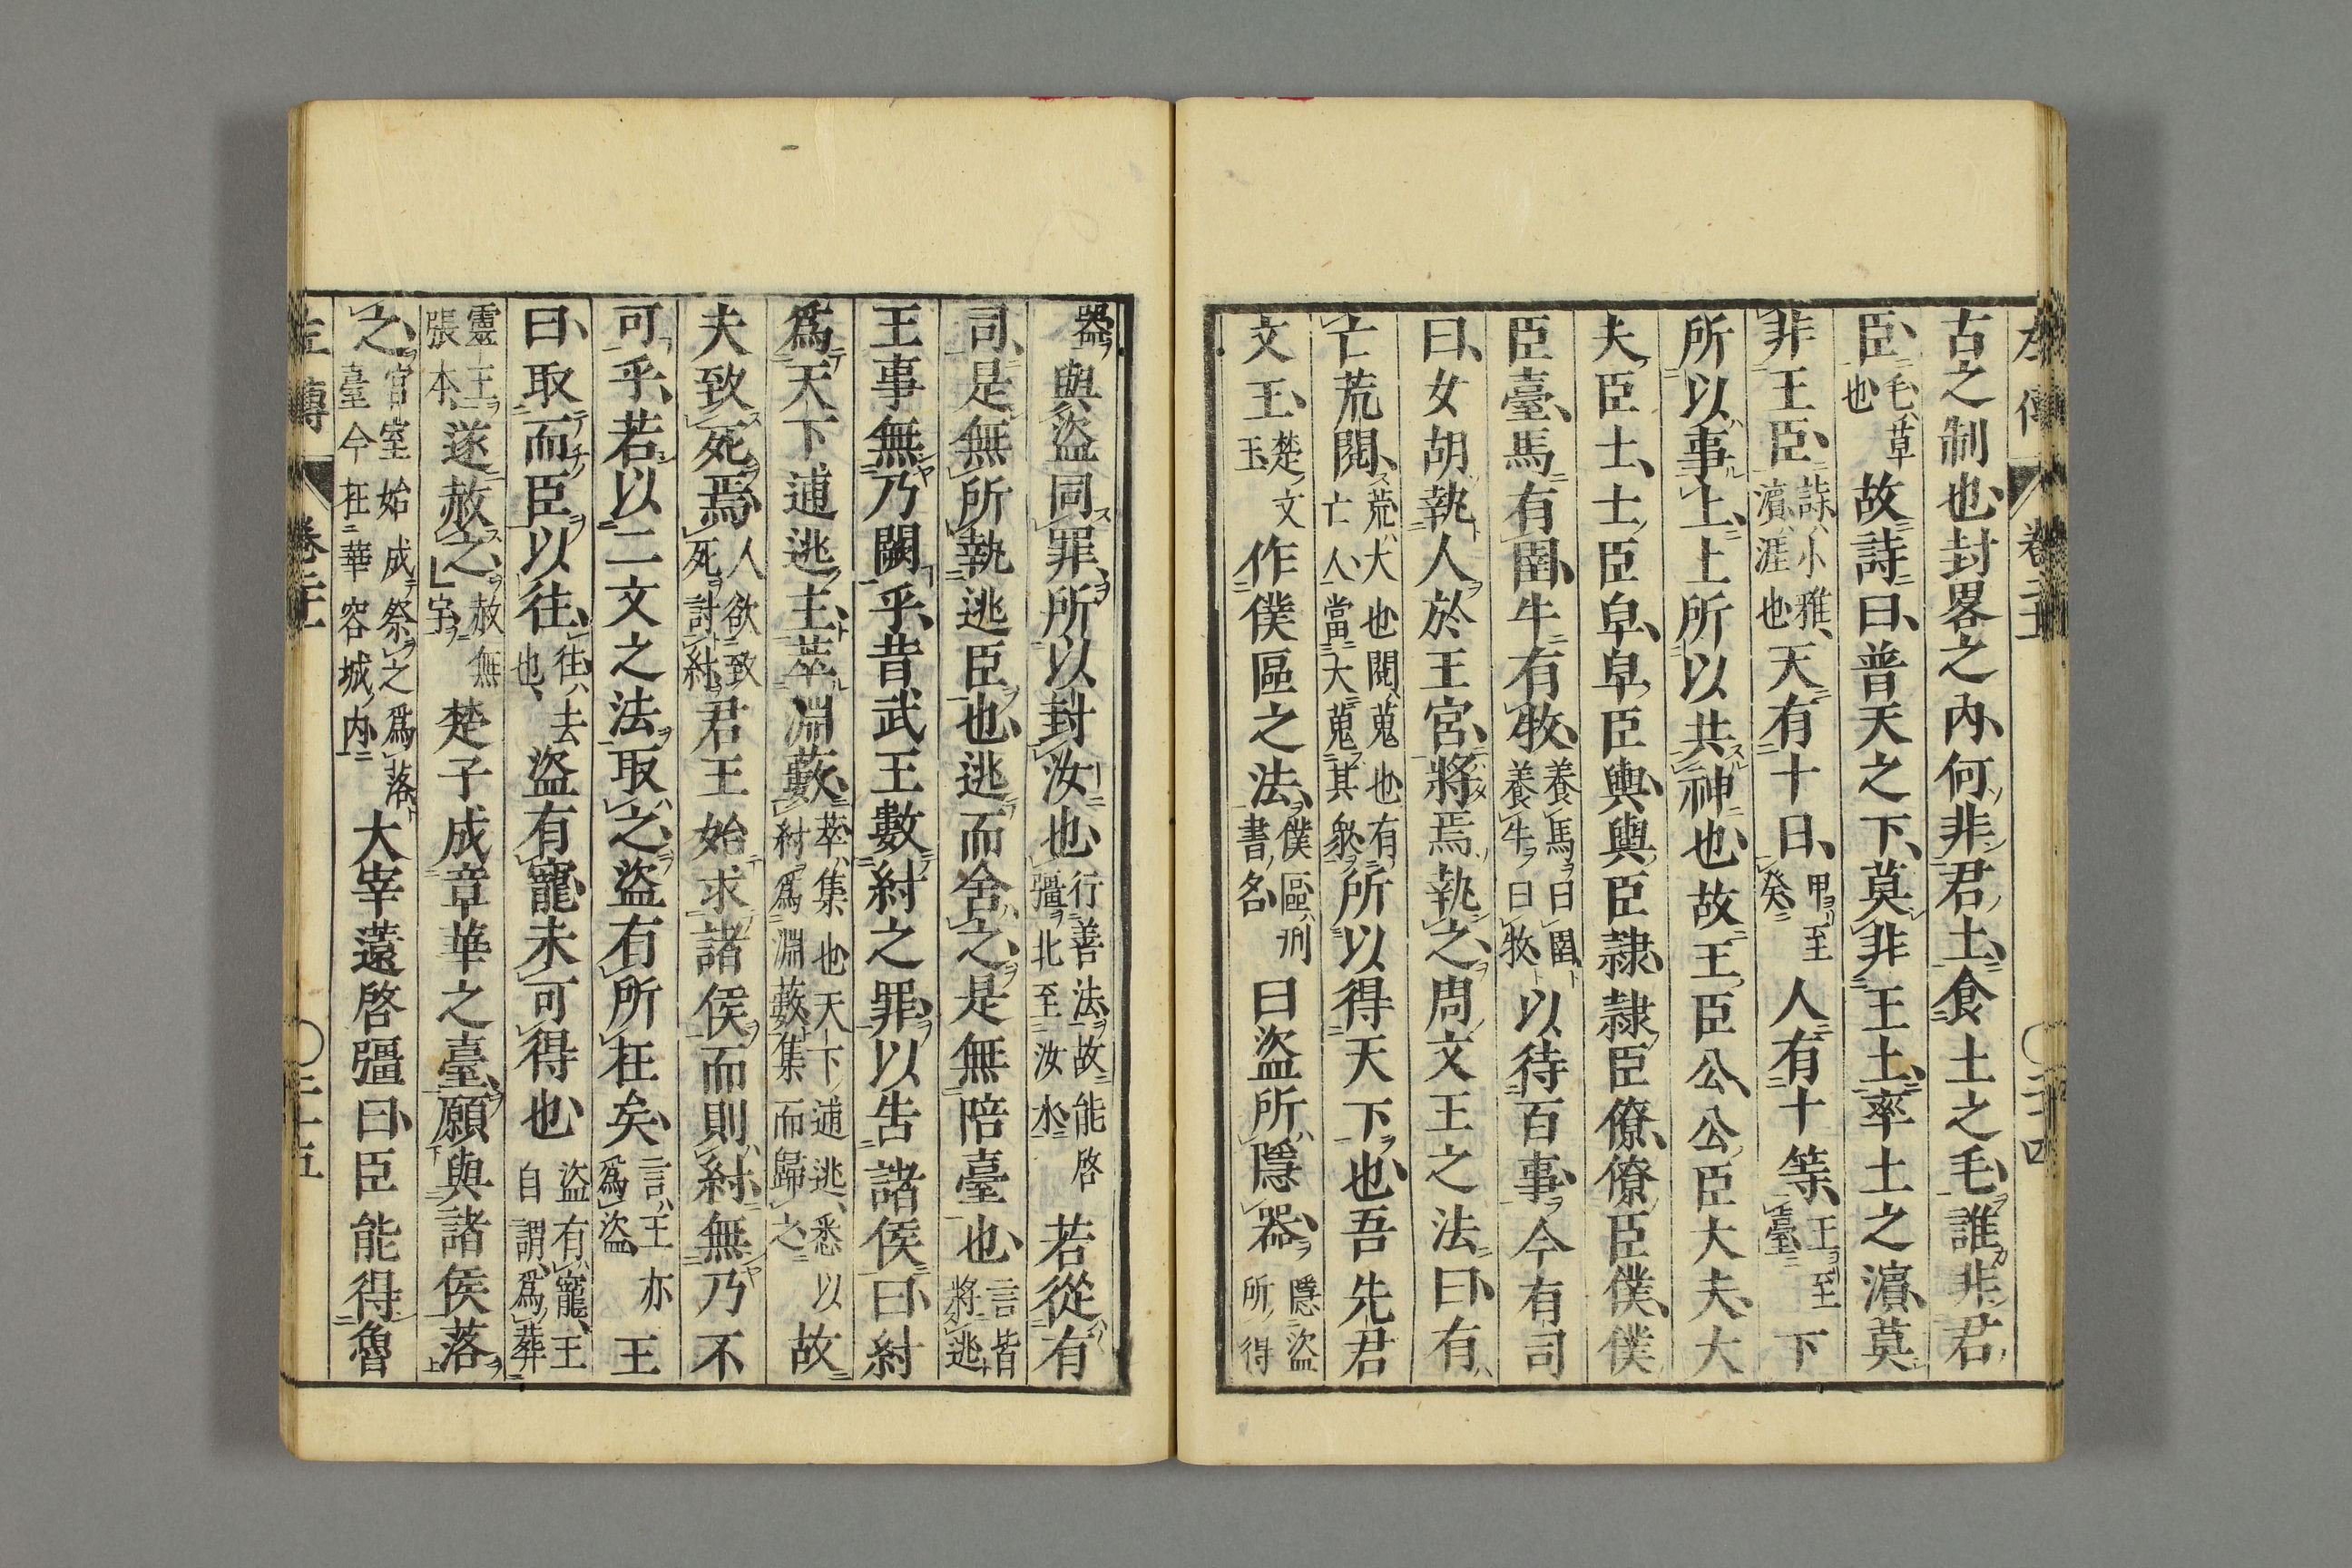 左傳 卷二十一 ○二十四
古之制也封畧之内何非君土食土之毛誰非君
臣毛草也故詩曰普天之下莫非王土率土之濵莫
非王臣詩小雅濵涯也天有十日甲至癸人有十等王至臺下
所以事上上所以共神也故王臣公公臣大夫大
夫臣士士臣皁皁臣輿輿臣隷隷臣僚僚臣僕僕
臣臺馬有圉牛有牧養馬曰圉養牛曰牧以待百事今有司
曰女胡執人於王宮將焉執之周文王之法曰有
亡荒閱荒大也閱蒐也有亡人當大蒐其衆所以得天下也吾先君
文王楚文王作僕區之法僕區刑書名曰盜所隱器隱盜所得
器與盜同罪所以封汝也行善法故能啓疆北至汝水若從有
司是無所執逃臣也逃而舍之是無陪臺也言皆將逃
王事無乃闕乎昔武王數紂之罪以告諸侯曰紂
爲天下逋逃主萃淵藪萃集也天下逋逃悉以紂爲淵藪集而歸之故
夫致死焉人欲致死討紂君王始求諸侯而則紂無乃不
可乎若以二文之法取之盜有所在矣言王亦爲盜王
曰取而臣以往往去也盜有寵未可得也盜有寵王自謂爲葬
靈王張本遂赦之赦無宇楚子成章華之臺願與諸侯落
之宫室始成祭之爲落臺今在華容城内大宰薳啓彊曰臣能得魯
左傳 卷二十一 ○二十五